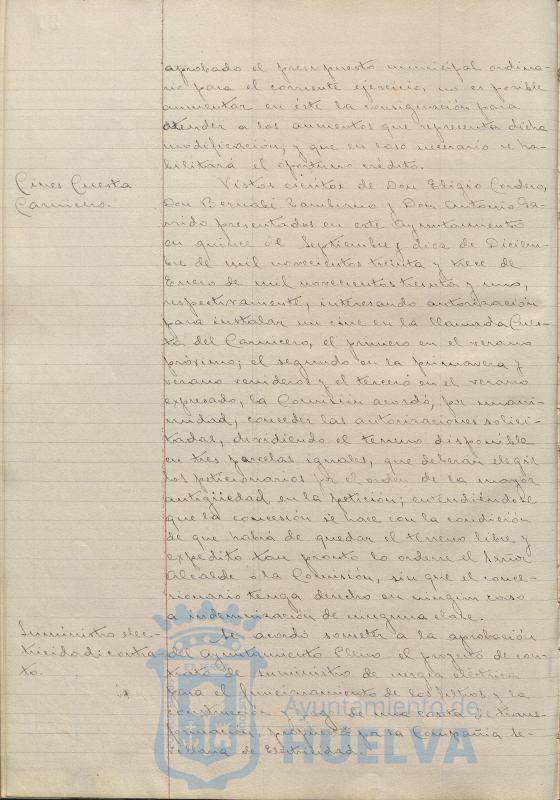 aprobado el presupuesto municipal ordina-
rio para el corriente ejercicio, no es posible
aumentar en éste la consignación para
atender a los aumentos que representa dicha
modificación; y que en caso necesario se ha-
bilitará el oportuno crédito.
Cines Cuesta
Carnicero.
Vistos escritos de Don Eligio Cordero,
Don Bernabé Zambrano y Don Antonio Ga-
rrido presentados en este Ayuntamiento
en quince de Septiembre, diez de Diciem-
bre de mil novecientos treinta y trece de
Enero de mil novecientos treinta y uno,
respectivamente, interesando autorización
para instalar un cine en la llamada Cues-
ta del Carnicero, el primero en el verano
próximo; el segundo en la primavera y
verano venideros y el tercero en el verano
expresado, la Comisión acordó, por unani-
midad, conceder las autorizaciones solici-
tadas, dividiendo el terreno disponible
en tres parcelas iguales, que deberán elegir
los peticionarios por el orden de la mayor
antigüedad en la petición; entendiéndose
que la concesión se hace con la condición
de que habrá de quedar el terreno libre y
expedito tan pronto lo ordene el Señor
Alcalde o la Comisión, sin que el conce-
sionario tenga derecho en ningún caso
a indemnización de ninguna clase.
Suministro elec-
tricidad: contra-
to.
Se acordó someter a la aprobación
del Ayuntamiento Pleno el proyecto de con-
trato de suministro de energía eléctrica
para el funcionamiento de los filtros y la
de una caseta de trans-
formación, por la Compañía Se-
villana de Electricidad.
Ayuntamiento de
HUELVA